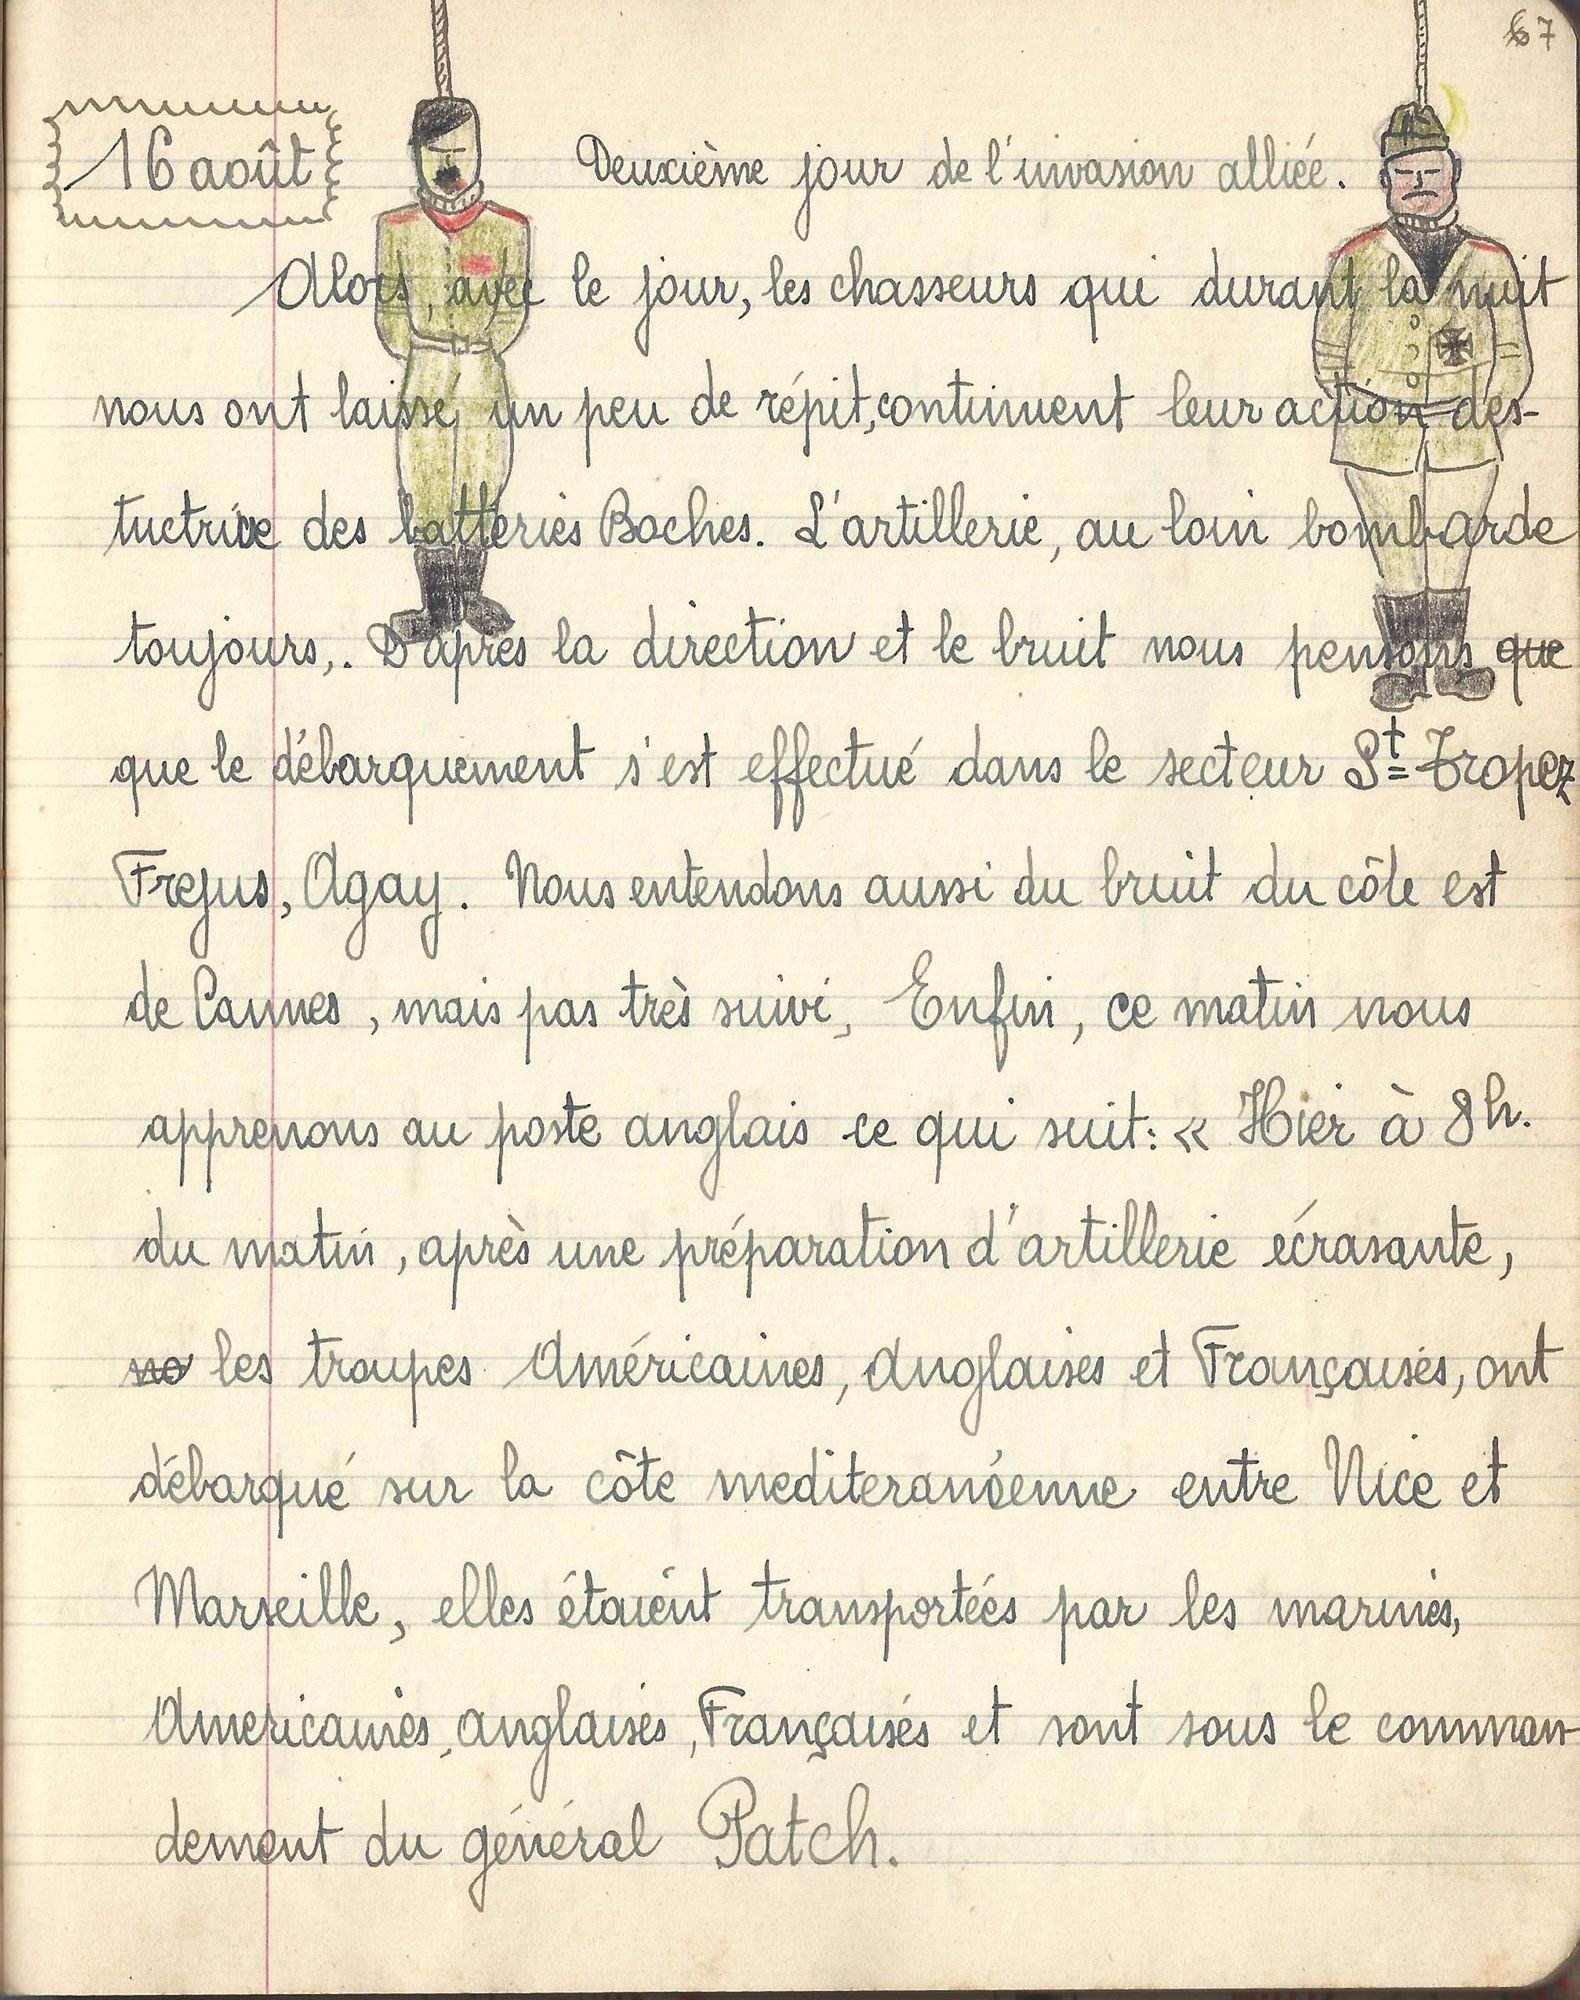 67
16 août
Deuxième jour de l'invasion alliée.
Alors, avec le jour, les chasseurs qui durant la nuit
nous ont laissé un peu de répit, continuent leur action des-
tuctrice des batteries Boches. L'artillerie, au loin bombarde
toujours,. D'après la direction et le bruit nous pensons que
que le débarquement s'est effectué dans le secteur St-Tropez
Frejus, Agay. Nous entendons aussi du bruit du côte est
de Cannes, mais pas très suivi, Enfin, ce matin nous
apprenons au poste anglais ce qui suit: « Hier à 8h.
du matin, après une préparation d'artillerie écrasante,
no les troupes Américaines, Anglaises et Françaises, ont
débarqué sur la côte mediteranéenne entre Nice et
Marseille, elles étaient transportées par les marines,
Americaines, anglaises, Françaises et sont sous le comman-
dement du général Patch.